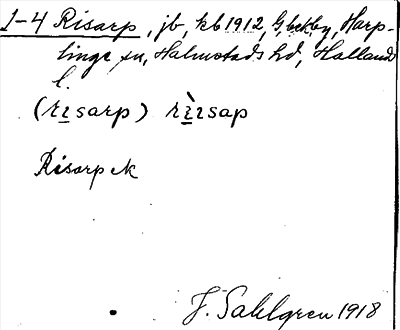 1-4 Risarp, jb, kb 1912, Harp-
linge sn, Halmstads hd, Halland
l.
(rɪsarp) rɪ̀ɪsap
Risarp ek
J. Sahlgren 1918